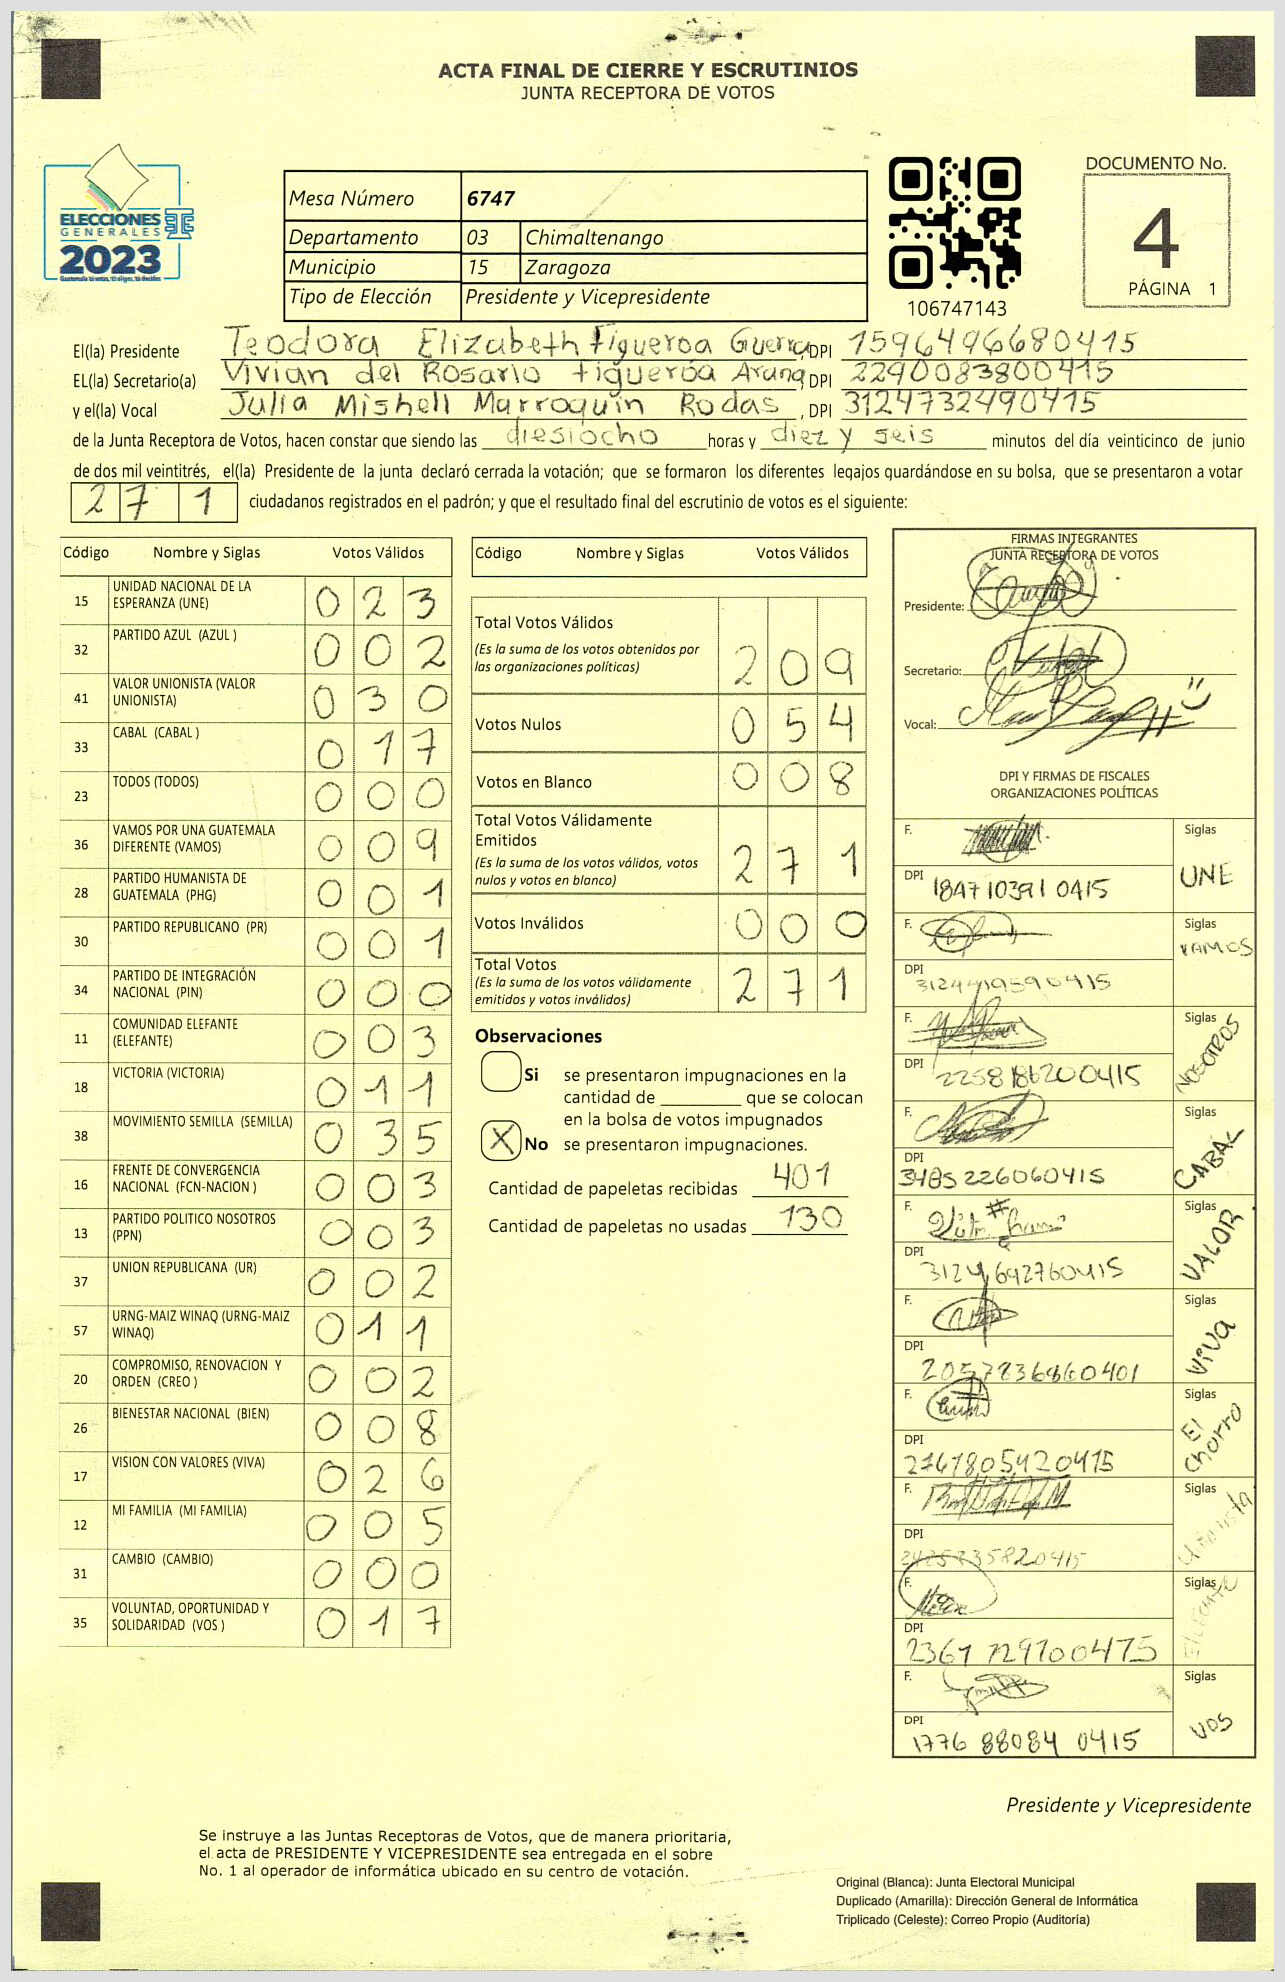 ACTA FINAL DE CIERRE Y ESCRUTINIOS
JUNTA RECEPTORA DE VOTOS
ELECCIONES
GENERALES
2023
Mesa Número 6747
Departamento 03 Chimaltenango
Municipio 15 Zaragoza
Tipo de Elección Presidente y Vicepresidente
106747143
DOCUMENTO No.
4
PÁGINA 1
El(la) Presidente Teodora Elizabeth Figueroa Guerra, DPI 1596496680415
EL(la) Secretario(a) Vivian del Rosario Figueroa DPI 2290083800415
y el(la) Vocal Julia Mishell Marroquín Rodas, DPI 3124732490415
de la Junta Receptora de Votos, hacen constar que siendo las diesiocho horas y diez y seis minutos del día veinticinco de junio
de dos mil veintitrés, el(la) Presidente de la junta declaró cerrada la votación; que se formaron los diferentes legajos guardándose en su bolsa, que se presentaron a votar
271 ciudadanos registrados en el padrón; y que el resultado final del escrutinio de votos es el siguiente:
Código Nombre y Siglas Votos Válidos
15 UNIDAD NACIONAL DE LA ESPERANZA (UNE) 023
32 PARTIDO AZUL (AZUL ) 002
41 VALOR UNIONISTA (VALOR UNIONISTA) 030
33 CABAL (CABAL ) 017
23 TODOS (TODOS) 000
36 VAMOS POR UNA GUATEMALA DIFERENTE (VAMOS) 009
28 PARTIDO HUMANISTA DE GUATEMALA (PHG) 001
30 PARTIDO REPUBLICANO (PR) 001
34 PARTIDO DE INTEGRACIÓN NACIONAL (PIN) 000
11 COMUNIDAD ELEFANTE (ELEFANTE) 003
18 VICTORIA (VICTORIA) 011
38 MOVIMIENTO SEMILLA (SEMILLA) 035
16 FRENTE DE CONVERGENCIA NACIONAL (FCN-NACION ) 003
13 PARTIDO POLITICO NOSOTROS (PPN) 003
37 UNION REPUBLICANA (UR) 002
57 URNG-MAIZ WINAQ (URNG-MAIZ WINAQ) 011
20 COMPROMISO, RENOVACION Y ORDEN (CREO ) 002
26 BIENESTAR NACIONAL (BIEN) 008
17 VISION CON VALORES (VIVA) 026
12 MI FAMILIA (MI FAMILIA) 005
31 CAMBIO (CAMBIO) 000
35 VOLUNTAD, OPORTUNIDAD Y SOLIDARIDAD (VOS ) 017
Código Nombre y Siglas Votos Válidos
Total Votos Válidos 209
(Es la suma de los votos obtenidos por
las organizaciones políticas)
Votos Nulos 054
Votos en Blanco 008
Total Votos Válidamente
Emitidos 271
(Es la suma de los votos válidos, votos
nulos y votos en blanco)
Votos Inválidos 000
Total Votos 271
(Es la suma de los votos válidamente
emitidos y votos inválidos)
Observaciones
Si se presentaron impugnaciones en la
cantidad de ________ que se colocan
en la bolsa de votos impugnados
X No se presentaron impugnaciones.
Cantidad de papeletas recibidas 401
Cantidad de papeletas no usadas 130
FIRMAS INTEGRANTES
JUNTA RECEPTORA DE VOTOS
Presidente:
Secretario:
Vocal:
DPI Y FIRMAS DE FISCALES
ORGANIZACIONES POLÍTICAS
F. Siglas
DPI 1847103910415 UNE
F. Siglas
DPI VAMOS
F. Siglas
DPI 2258186200415 NOSOTROS
F. Siglas
DPI 3485226060415 CABAL
F. Siglas
DPI 3124692760415 VALOR
F. Siglas
DPI VIVA
F. Siglas
DPI El Chorro
F. Siglas
DPI Unionista
F. Siglas
DPI
F. Siglas
DPI 1776 88084 0415 VOS
Presidente y Vicepresidente
Se instruye a las Juntas Receptoras de Votos, que de manera prioritaria,
el acta de PRESIDENTE Y VICEPRESIDENTE sea entregada en el sobre
No. 1 al operador de informática ubicado en su centro de votación.
Original (Blanca): Junta Electoral Municipal
Duplicado (Amarilla): Dirección General de Informática
Triplicado (Celeste): Correo Propio (Auditoría)